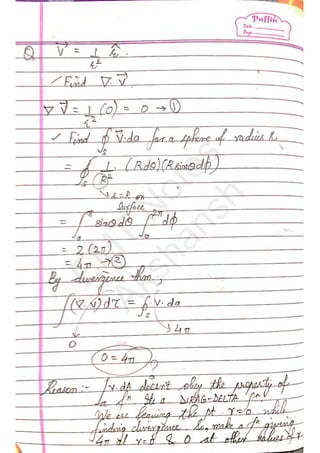 Puffin
Date
Page
Q. V⃗ = 1/r² r̂.
✓ Find ∇. V⃗.
∇ V⃗ = 1/r² (0) = 0 → ①
✓ Find ∮_S V⃗.da for a sphere of radius R.
= ∮_S 1/R² (R dθ)(R sinθ dϕ)
→ r=R on
Surface
= ∫_0^π sinθ dθ ∫_0^2π dϕ
= 2(2π)
= 4π → ②
By divergence thm.,
∫(∇.v) dτ = ∮_S v.da
0 4π
0 = 4π ?
Reason:- ∫ v.da doesn't obey the property of
a fⁿ. Its a DIRAG-DELTA fⁿ!
We are leaving the pt. r=0 while
finding divergence. So, make a fⁿ giving
4π at r=0 & 0 at other values of r.
Akshansh